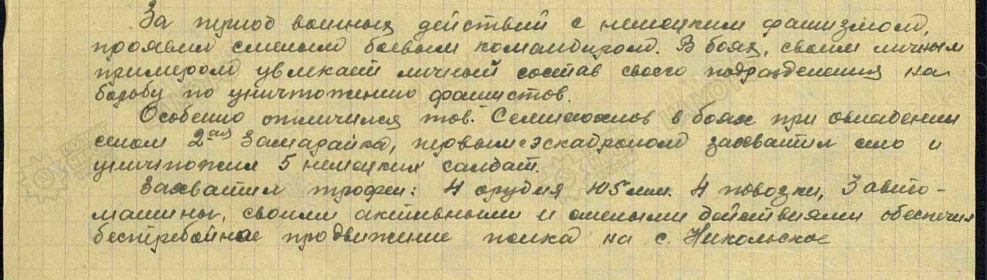 За период военных действий с немецким фашизмом,
проявил смелым боевым командиром. В боях, своим личным
примером увлекает личный состав своего подразделения на
борьбу по уничтожению фашистов.
Особенно отличился тов. в боях при овладении
селом 2ая Замарайка, первым эскадроном захватил село и
уничтожил 5 немецких солдат.
Захватил трофеи: 4 орудия 105 мм. 4 повозки, 3 авто-
машины, своими активными и смелыми действиями обеспечил
бесперебойное продвижение полка на с. Никольское